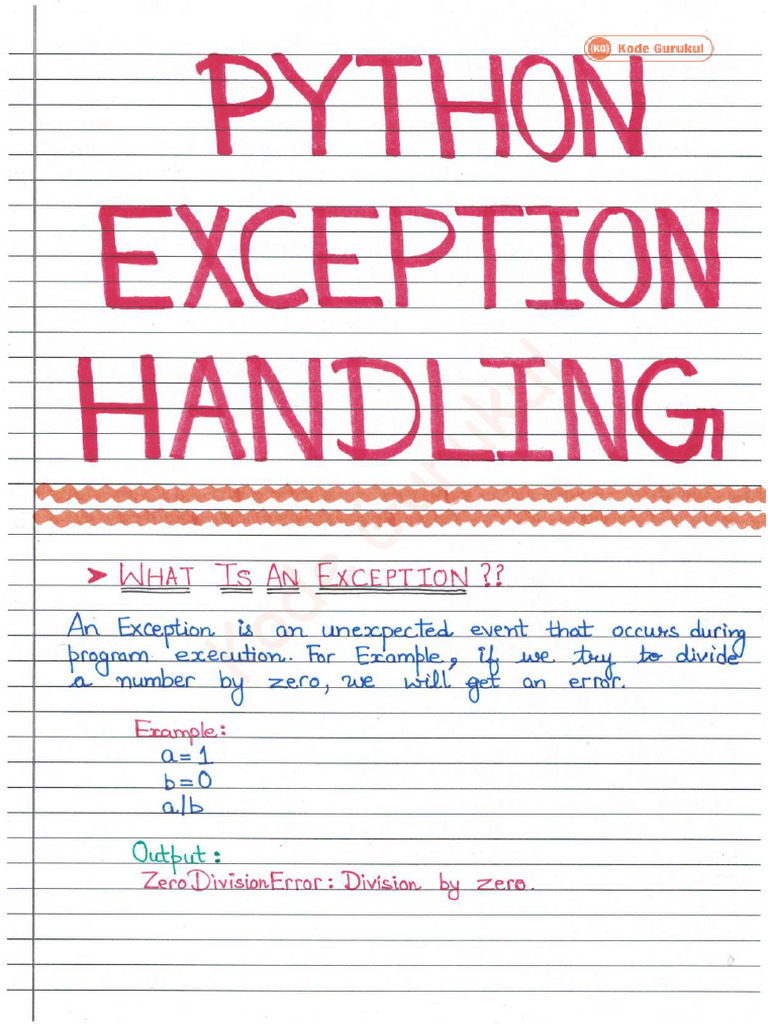 KG Kode Gurukul
PYTHON
EXCEPTION
HANDLING
➤ WHAT IS AN EXCEPTION ??
An Exception is an unexpected event that occurs during
program execution. For Example, if we try to divide
a number by zero, we will get an error.
Example:
a=1
b=0
a/b
Output:
ZeroDivisionError: Division by zero.
Kode Gurukul